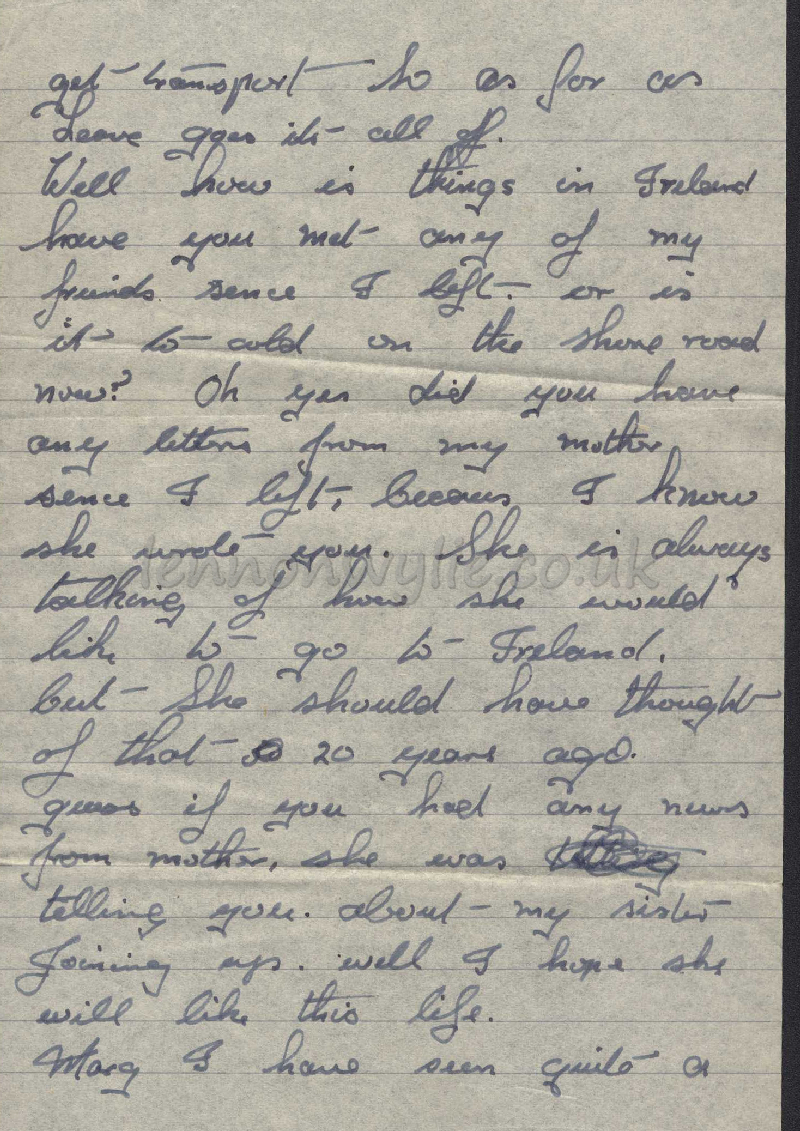 get transport so as for as
Leave goes its all off.
Well how is things in Ireland
have you met any of my
freinds sence I left. or is
it to cold on the shore road
now? Oh yes did you have
any letters from my mother
sence I left, becaus I know
she wrote you. She is always
lennonwylie.co.uk
talking of how she would
like to go to Ireland.
but she should have thought
of that 20 years ago.
guess if you had any news
from mother, she was
telling you. about my sister
Joining up. well I hope she
will like this life.
Marg I have seen quite a